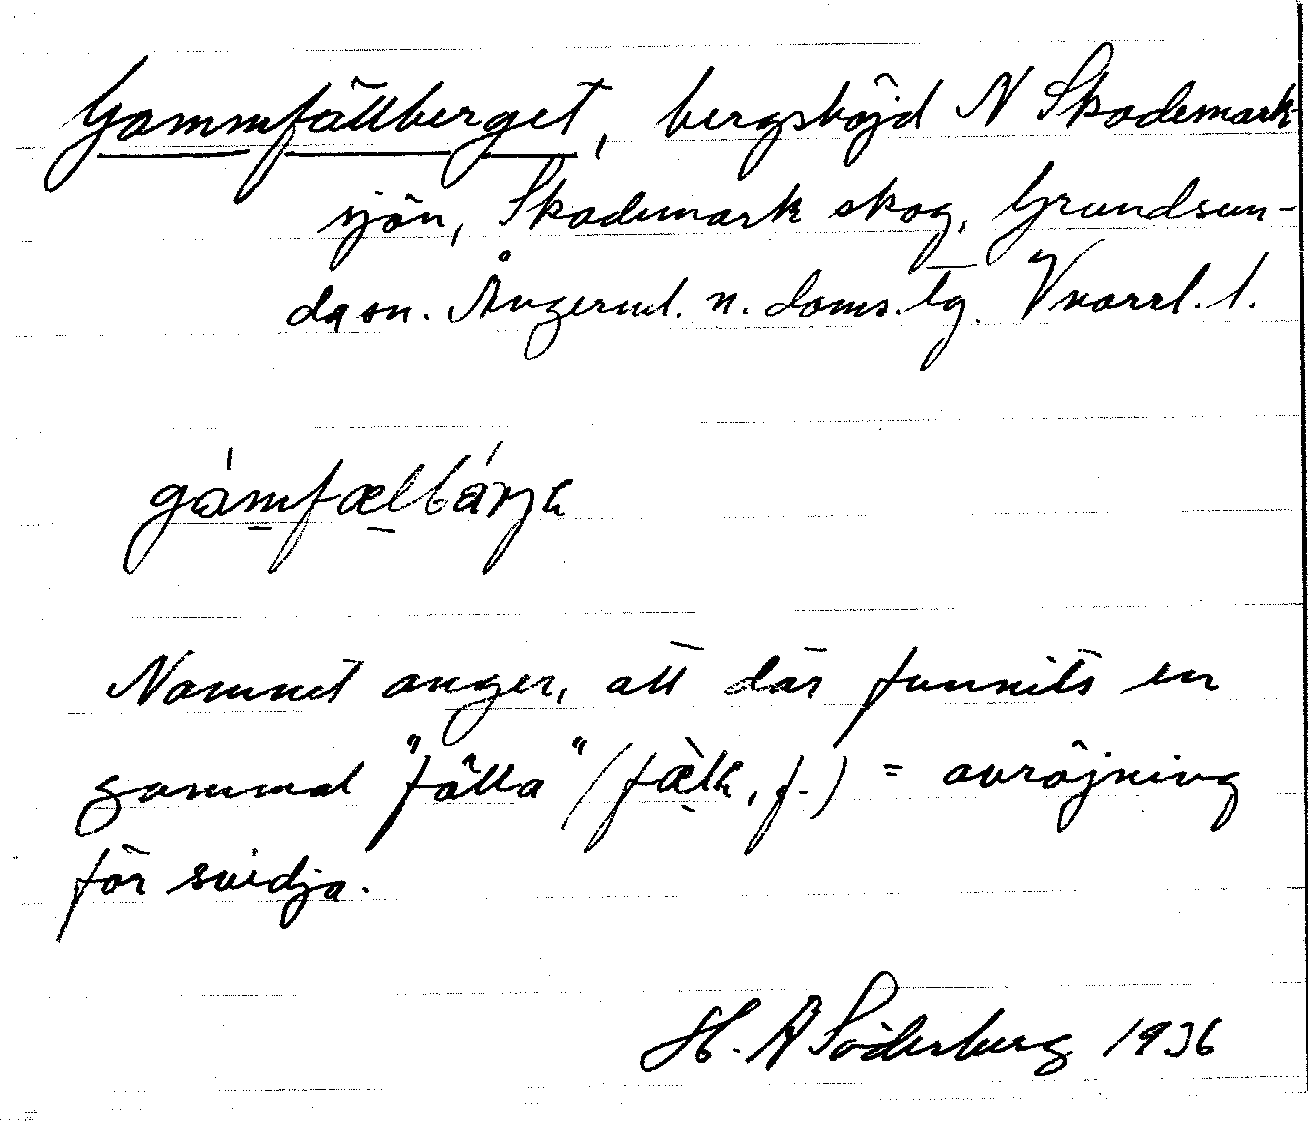 Gammfällberget, bergshöjd N Skademark-
sjön, Skademark skog, Grundsun-
da sn. Ångerml. n. doms.lg. Vnorrl. l.
gámfælbárja
Namnet anger, att där funnits en
gammal "fälla" (fæla, f.) = avröjning
för svidja.
H. A Söderberg 1936